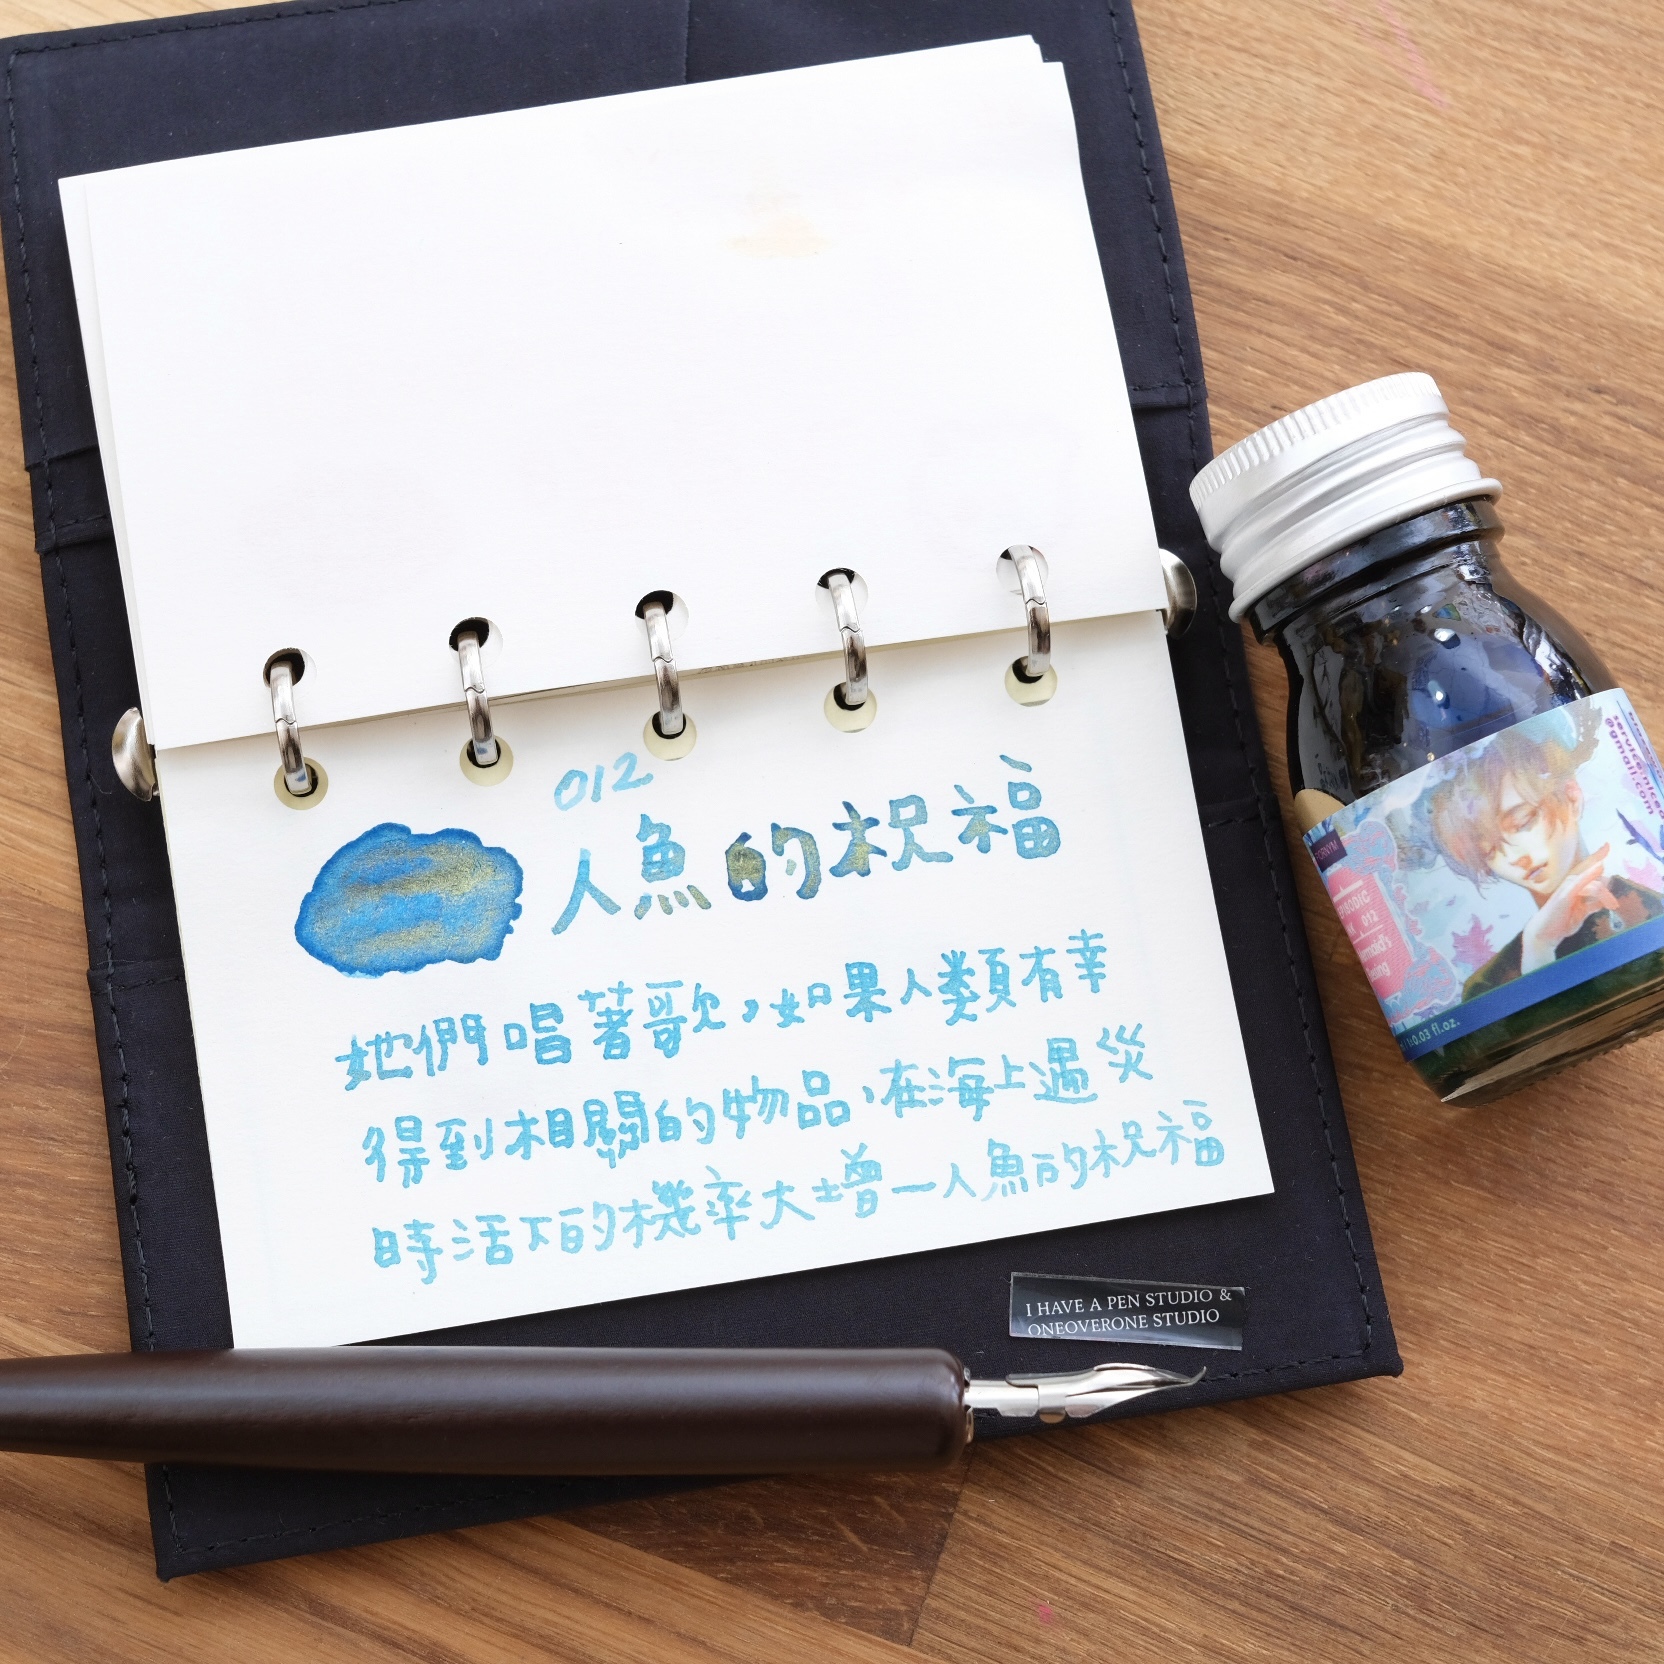 012
人魚的祝福
她們唱著歌，如果人類有幸
得到相關的物品，在海上遇災
時活下的機率大增—人魚的祝福
I HAVE A PEN STUDIO &
ONEOVERONE STUDIO
service.nice
@gmail.com
012
0.03 fl.oz.